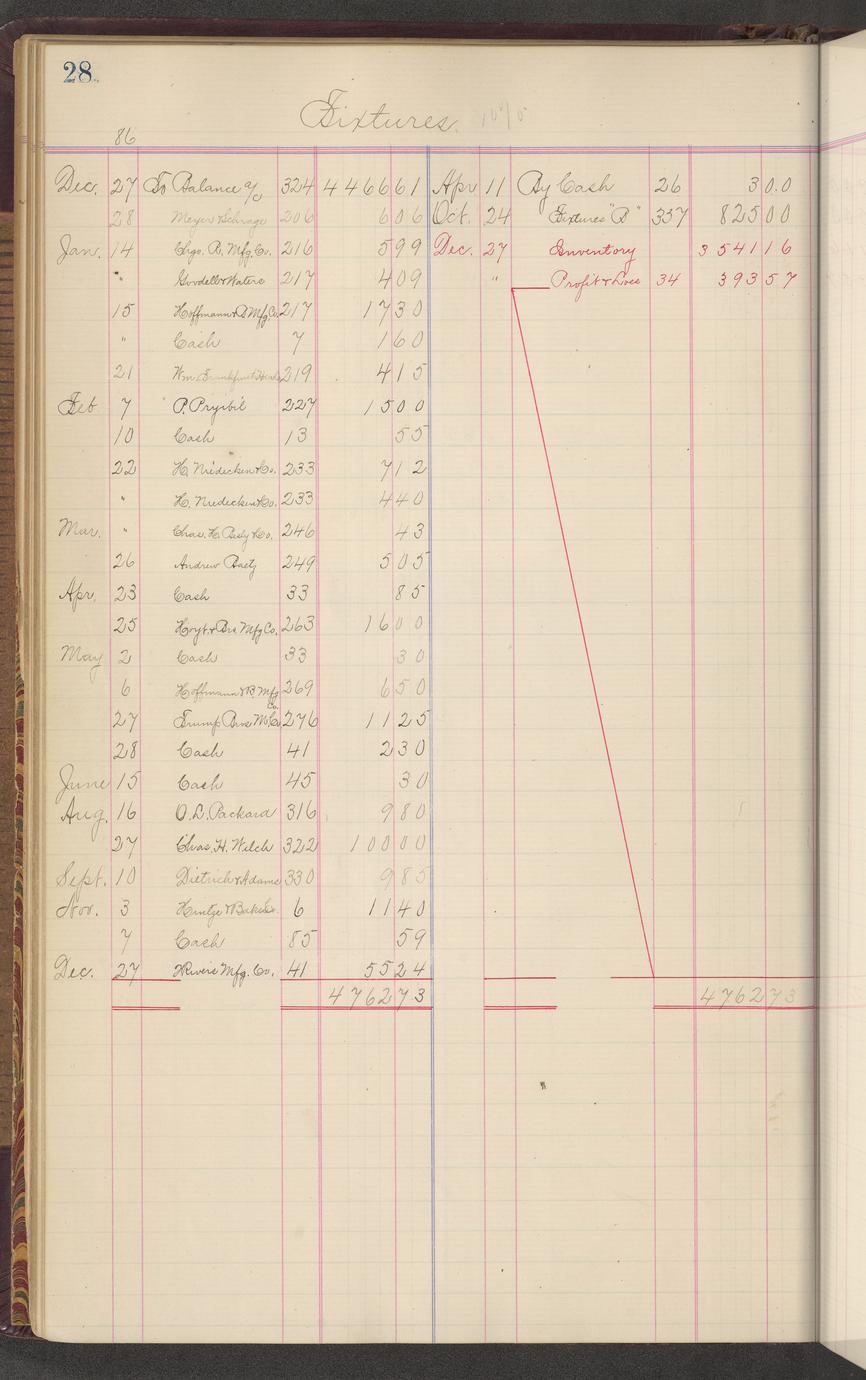 28
Fixtures. 10%
86
Dec. 27 To Balance a/c 324 4466 61
28 Meyer & Schrage 206 6 06
Jan. 14 Chgo. R. Mfg. Co. 216 5 99
" Goodell & Waters 217 4 09
15 Hoffmann & B Mfg Co. 217 17 30
" Cash 7 1 60
21 Wm. Frankfurt 219 4 15
Feb 7 P. Pryibil 227 15 00
10 Cash 13 55
22 H. Niedecken & Co. 233 7 12
" H. Niedecken & Co. 233 4 40
Mar. " Chas. H. Besly & Co. 246 43
26 Andrew Baetz 249 5 05
Apr. 23 Cash 33 85
25 Hoyt & Bro Mfg Co. 263 16 00
May 2 Cash 33 30
6 Hoffmann & B. Mfg Co. 269 6 50
27 Trump Bros M. Co. 276 11 25
28 Cash 41 2 30
June 15 Cash 45 30
Aug. 16 O. L. Packard 316 9 80
27 Chas. H. Welch 322 100 00
Sept. 10 Dietrich & Adams 330 9 85
Nov. 3 & Baker 6 11 40
7 Cash 85 59
Dec. 27 Mfg. Co. 41 55 24
4762 73
Apr 11 By Cash 26 3 0.0
Oct. 24 Fixtures "B" 357 825 00
Dec. 27 Inventory 3541 16
" Profit & Loss 34 393 57
4762 73